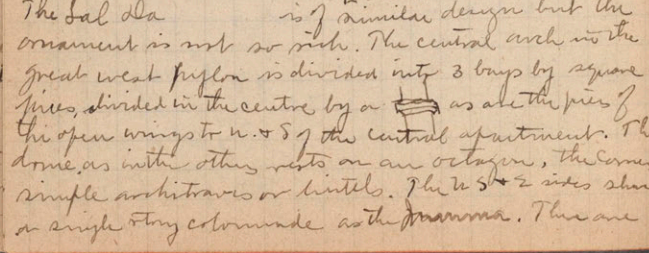 The Lal da is of similar design but the
ornament is not so rich. The central arch in the
great west pylon is divided into 3 bays by square
piers, divided in the centre by a as are the piers of
the open wings to N. & S of the central apartment. Th
dome, as in the others rests on an octagon, the corne
simple architraves or lintels. The N S & E sides
single story colonnade as the . This are